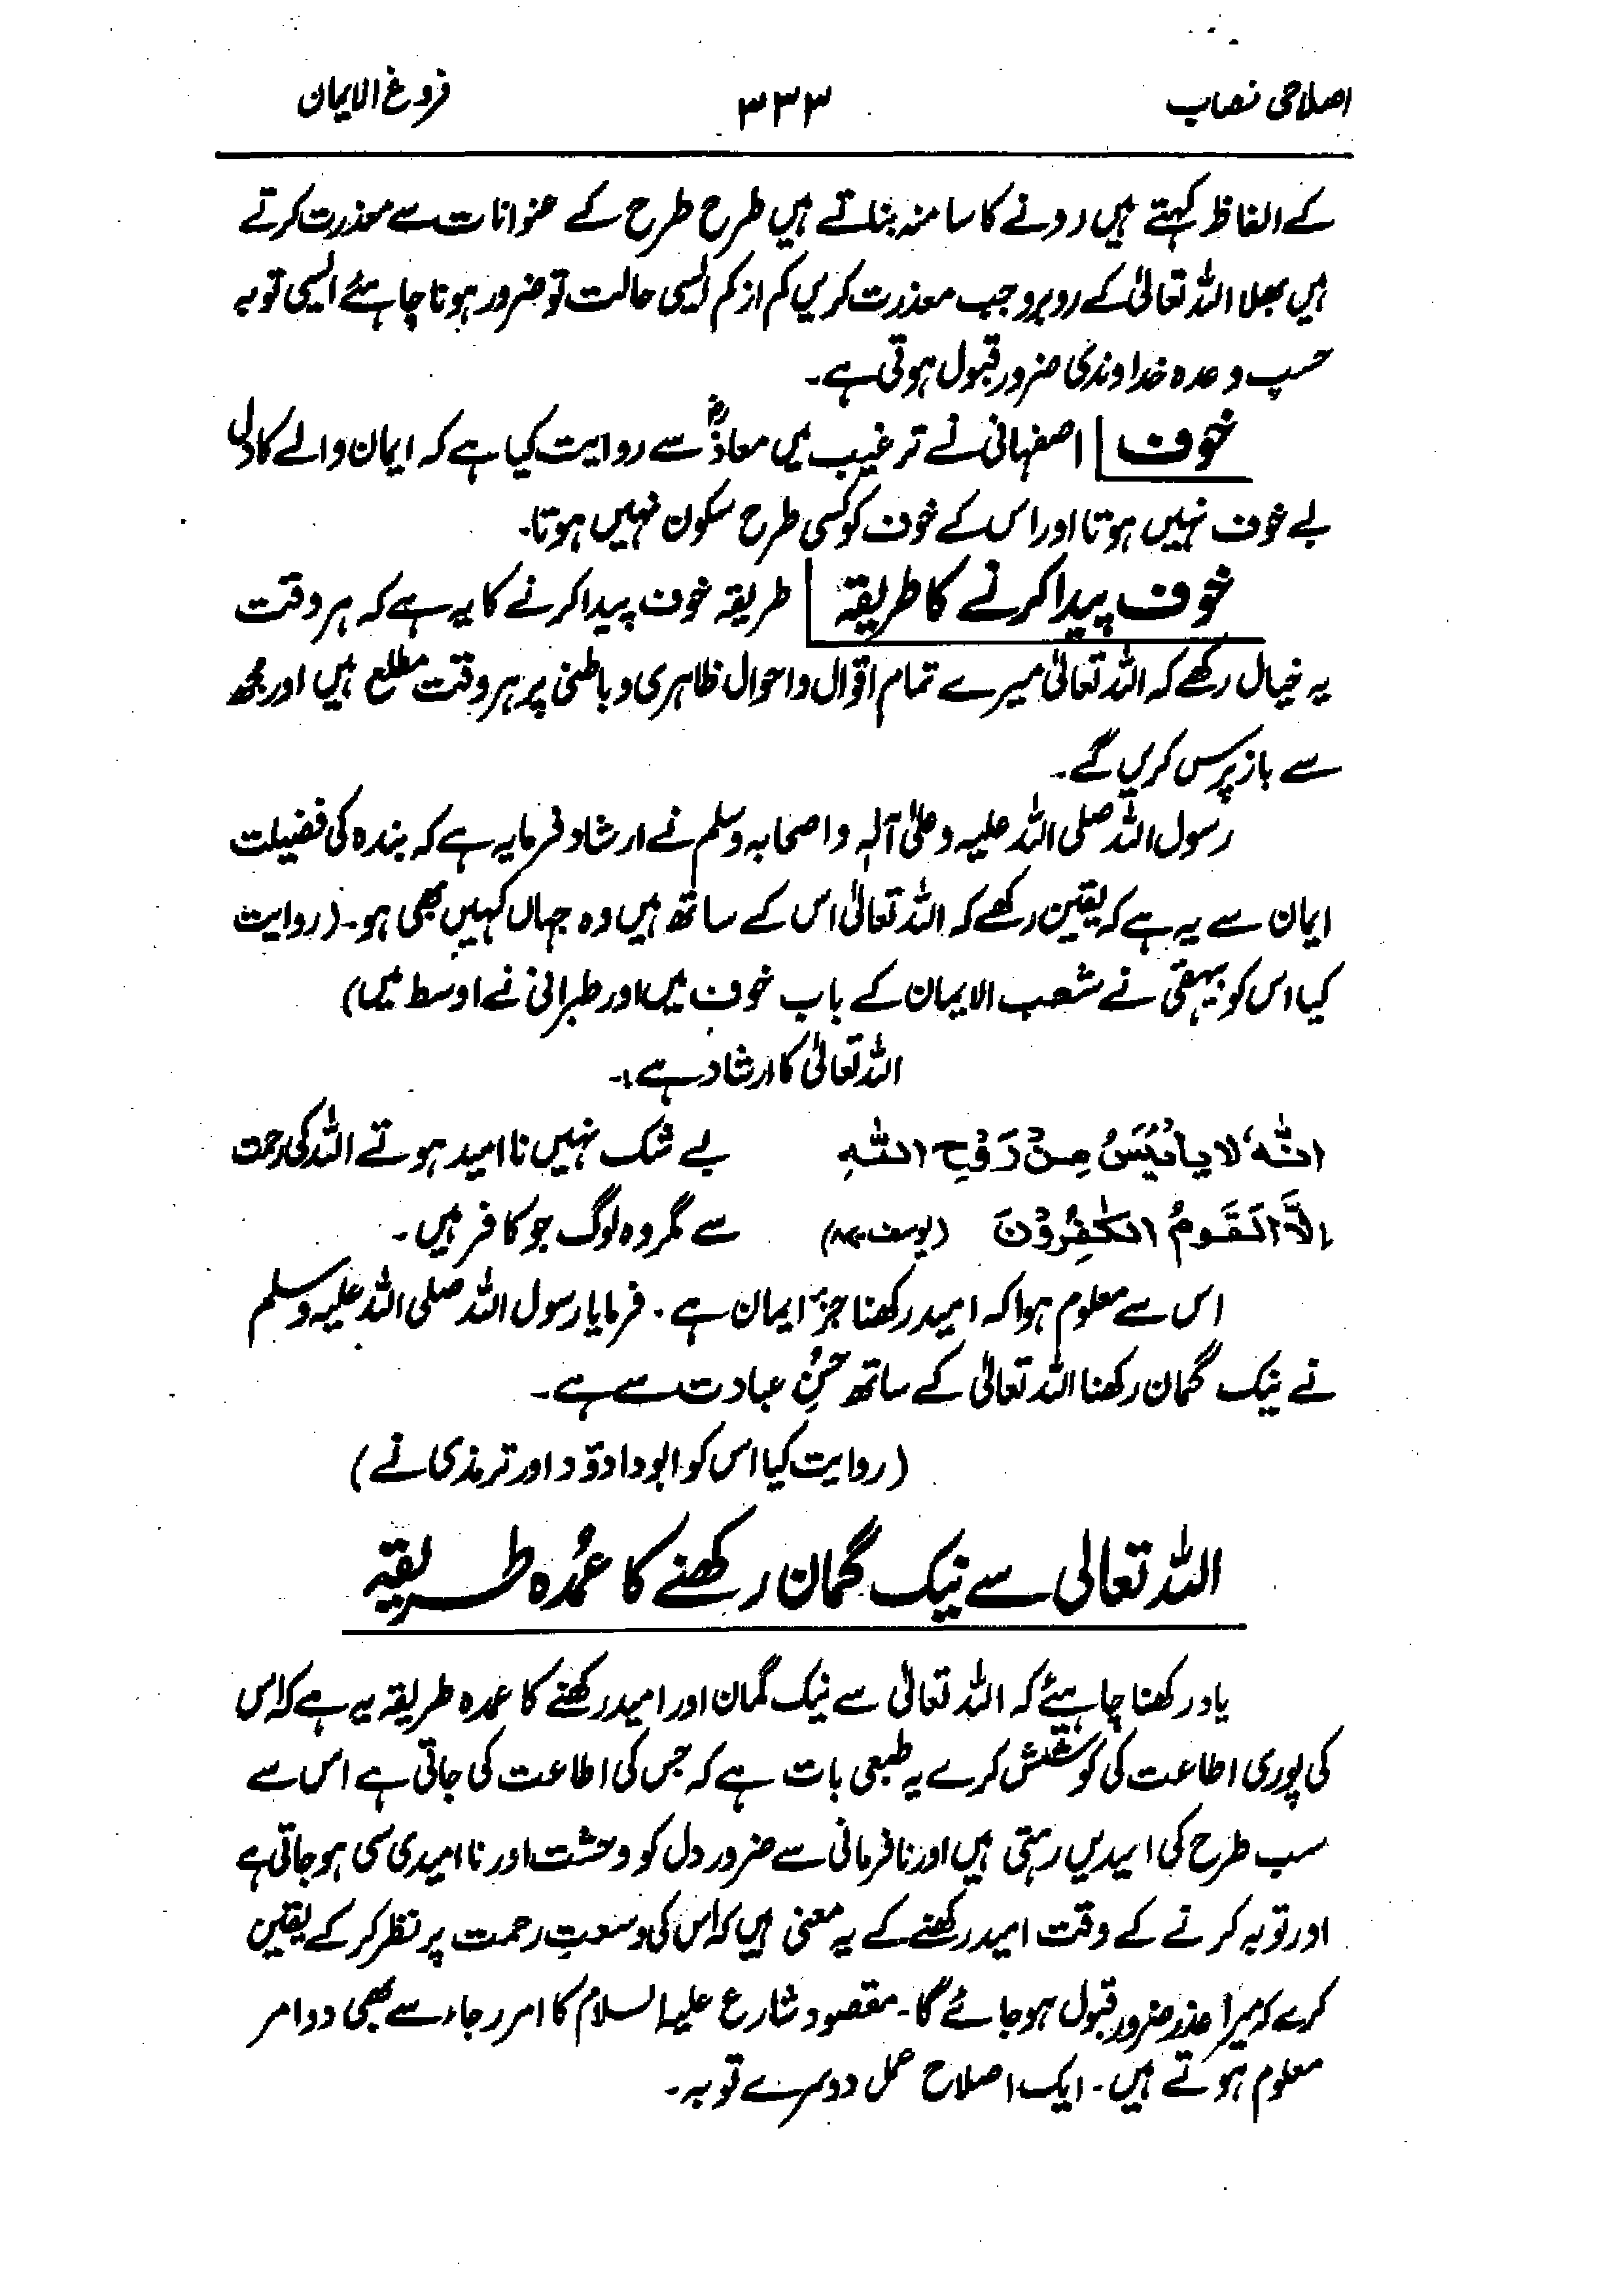 اصلاحی نصاب ۳۳۳ فروغ الایمان
کے الفاظ کہتے ہیں رونے کا سا منہ بناتے ہیں طرح طرح کے عنوانات سے معذرت کرتے
ہیں بھلا اللہ تعالیٰ کے روبرو جب معذرت کریں کم از کم ایسی حالت تو ضرور ہونا چاہئے ایسی توبہ
حسب وعدہ خداوندی ضرور قبول ہوتی ہے۔
خوف اصفہانی نے ترغیب میں معاذؓ سے روایت کیا ہے کہ ایمان والے کا دل
بے خوف نہیں ہوتا اور اس کے خوف کو کسی طرح سکون نہیں ہوتا۔
خوف پیدا کرنے کا طریقہ طریقہ خوف پیدا کرنے کا یہ ہے کہ ہر وقت
یہ خیال رکھے کہ اللہ تعالیٰ میرے تمام اقوال و احوال ظاہری و باطنی پر ہر وقت مطلع ہیں اور مجھ
سے باز پرس کریں گے۔
رسول اللہ صلی اللہ علیہ وعلیٰ آلہٖ واصحابہ وسلم نے ارشاد فرمایہ ہے کہ بندہ کی فضیلت
ایمان سے یہ ہے کہ یقین رکھے کہ اللہ تعالیٰ اس کے ساتھ ہیں وہ جہاں کہیں بھی ہو۔ (روایت
کیا اس کو بیہقی نے شعب الایمان کے باب خوف میں اور طبرانی نے اوسط میں)
اللہ تعالیٰ کا ارشاد ہے:۔
انہٗ لا یایْئَسُ مِنْ رَوْحِ اللہِ بے شک نہیں ناامید ہوتے اللہ کی رحمت
اِلَّا الْقَومُ الکٰفِرُوْنَ (یوسف ۸۷) سے مگر وہ لوگ جو کافر ہیں۔
اس سے معلوم ہوا کہ امید رکھنا جزءِ ایمان ہے۔ فرمایا رسول اللہ صلی اللہ علیہ وسلم
نے نیک گمان رکھنا اللہ تعالیٰ کے ساتھ حُسنِ عبادت سے ہے۔
(روایت کیا اس کو ابوداؤد اور ترمذی نے)
اللہ تعالیٰ سے نیک گمان رکھنے کا عُمدہ طریقہ
یاد رکھنا چاہیئے کہ اللہ تعالیٰ سے نیک گمان اور امید رکھنے کا عمدہ طریقہ یہ ہے کہ اس
کی پوری اطاعت کی کوشش کرے یہ طبعی بات ہے کہ جس کی اطاعت کی جاتی ہے اس سے
سب طرح کی امیدیں رہتی ہیں اور نافرمانی سے ضرور دل کو وحشت اور ناامیدی سی ہو جاتی ہے
اور توبہ کرتے کے وقت امید رکھنے کے یہ معنی ہیں کہ اس کی وسعتِ رحمت پر نظر کر کے یقین
کرے کہ میرا عذر ضرور قبول ہو جائے گا۔ مقصود شارع علیہ السلام کا امر رجاء سے بھی دو امر
معلوم ہوتے ہیں۔ ایک اصلاح عمل دوسرے توبہ۔